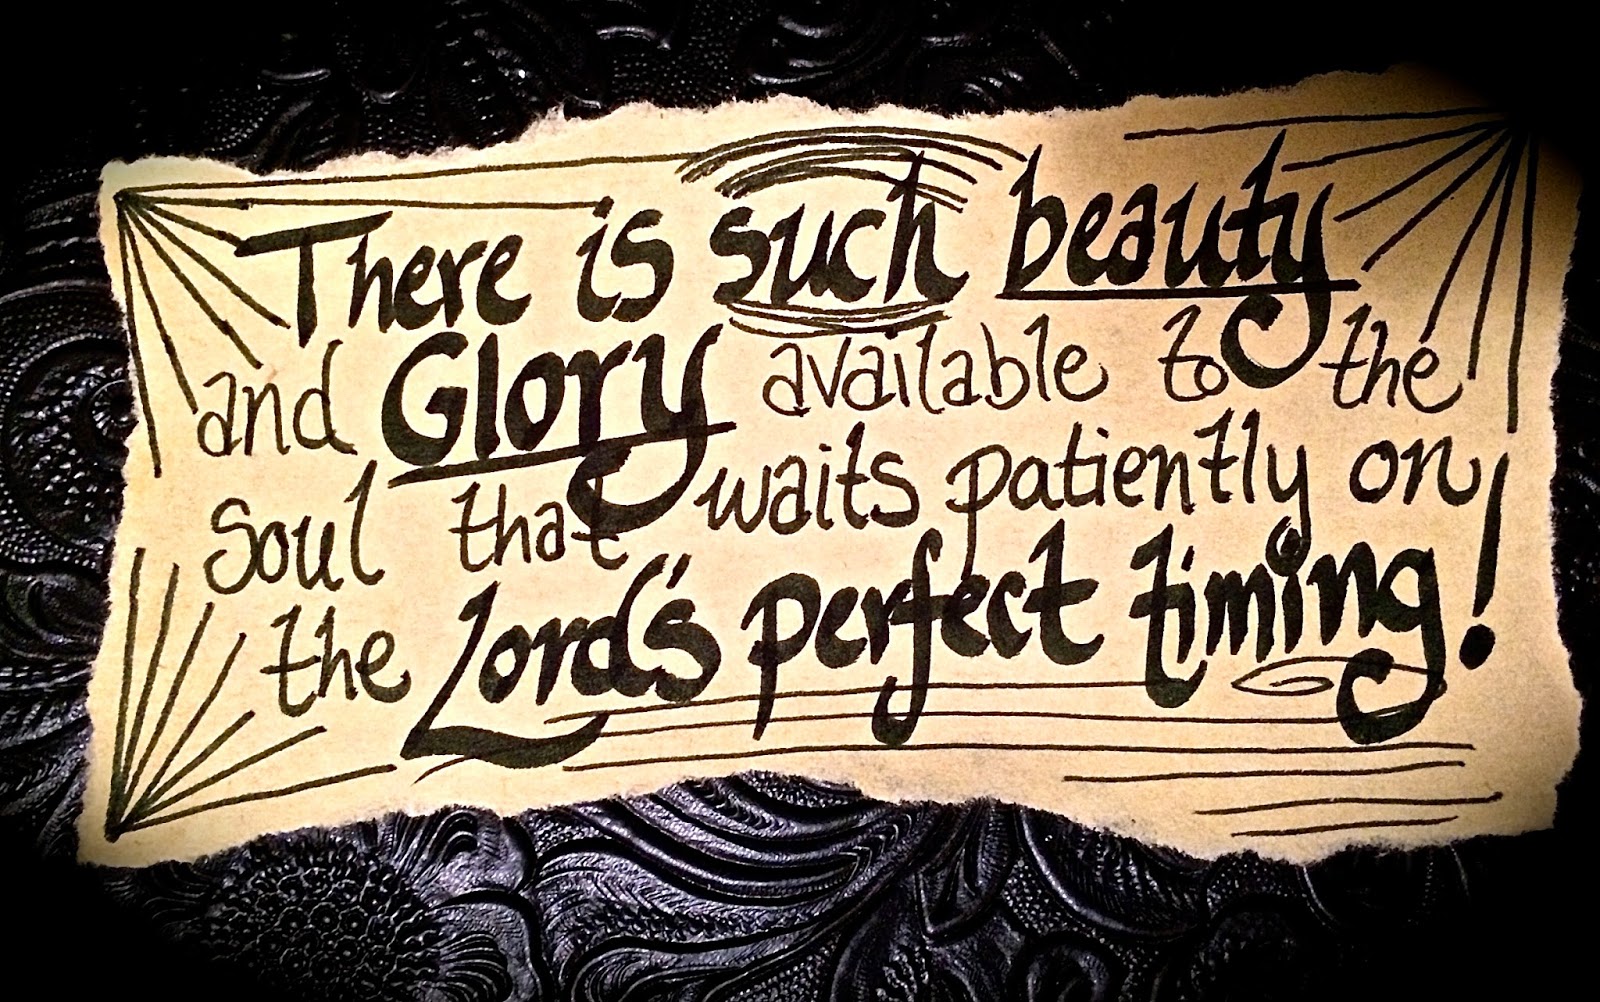 There is such beauty
and Glory available to the
soul that waits patiently on
the Lord's perfect timing!